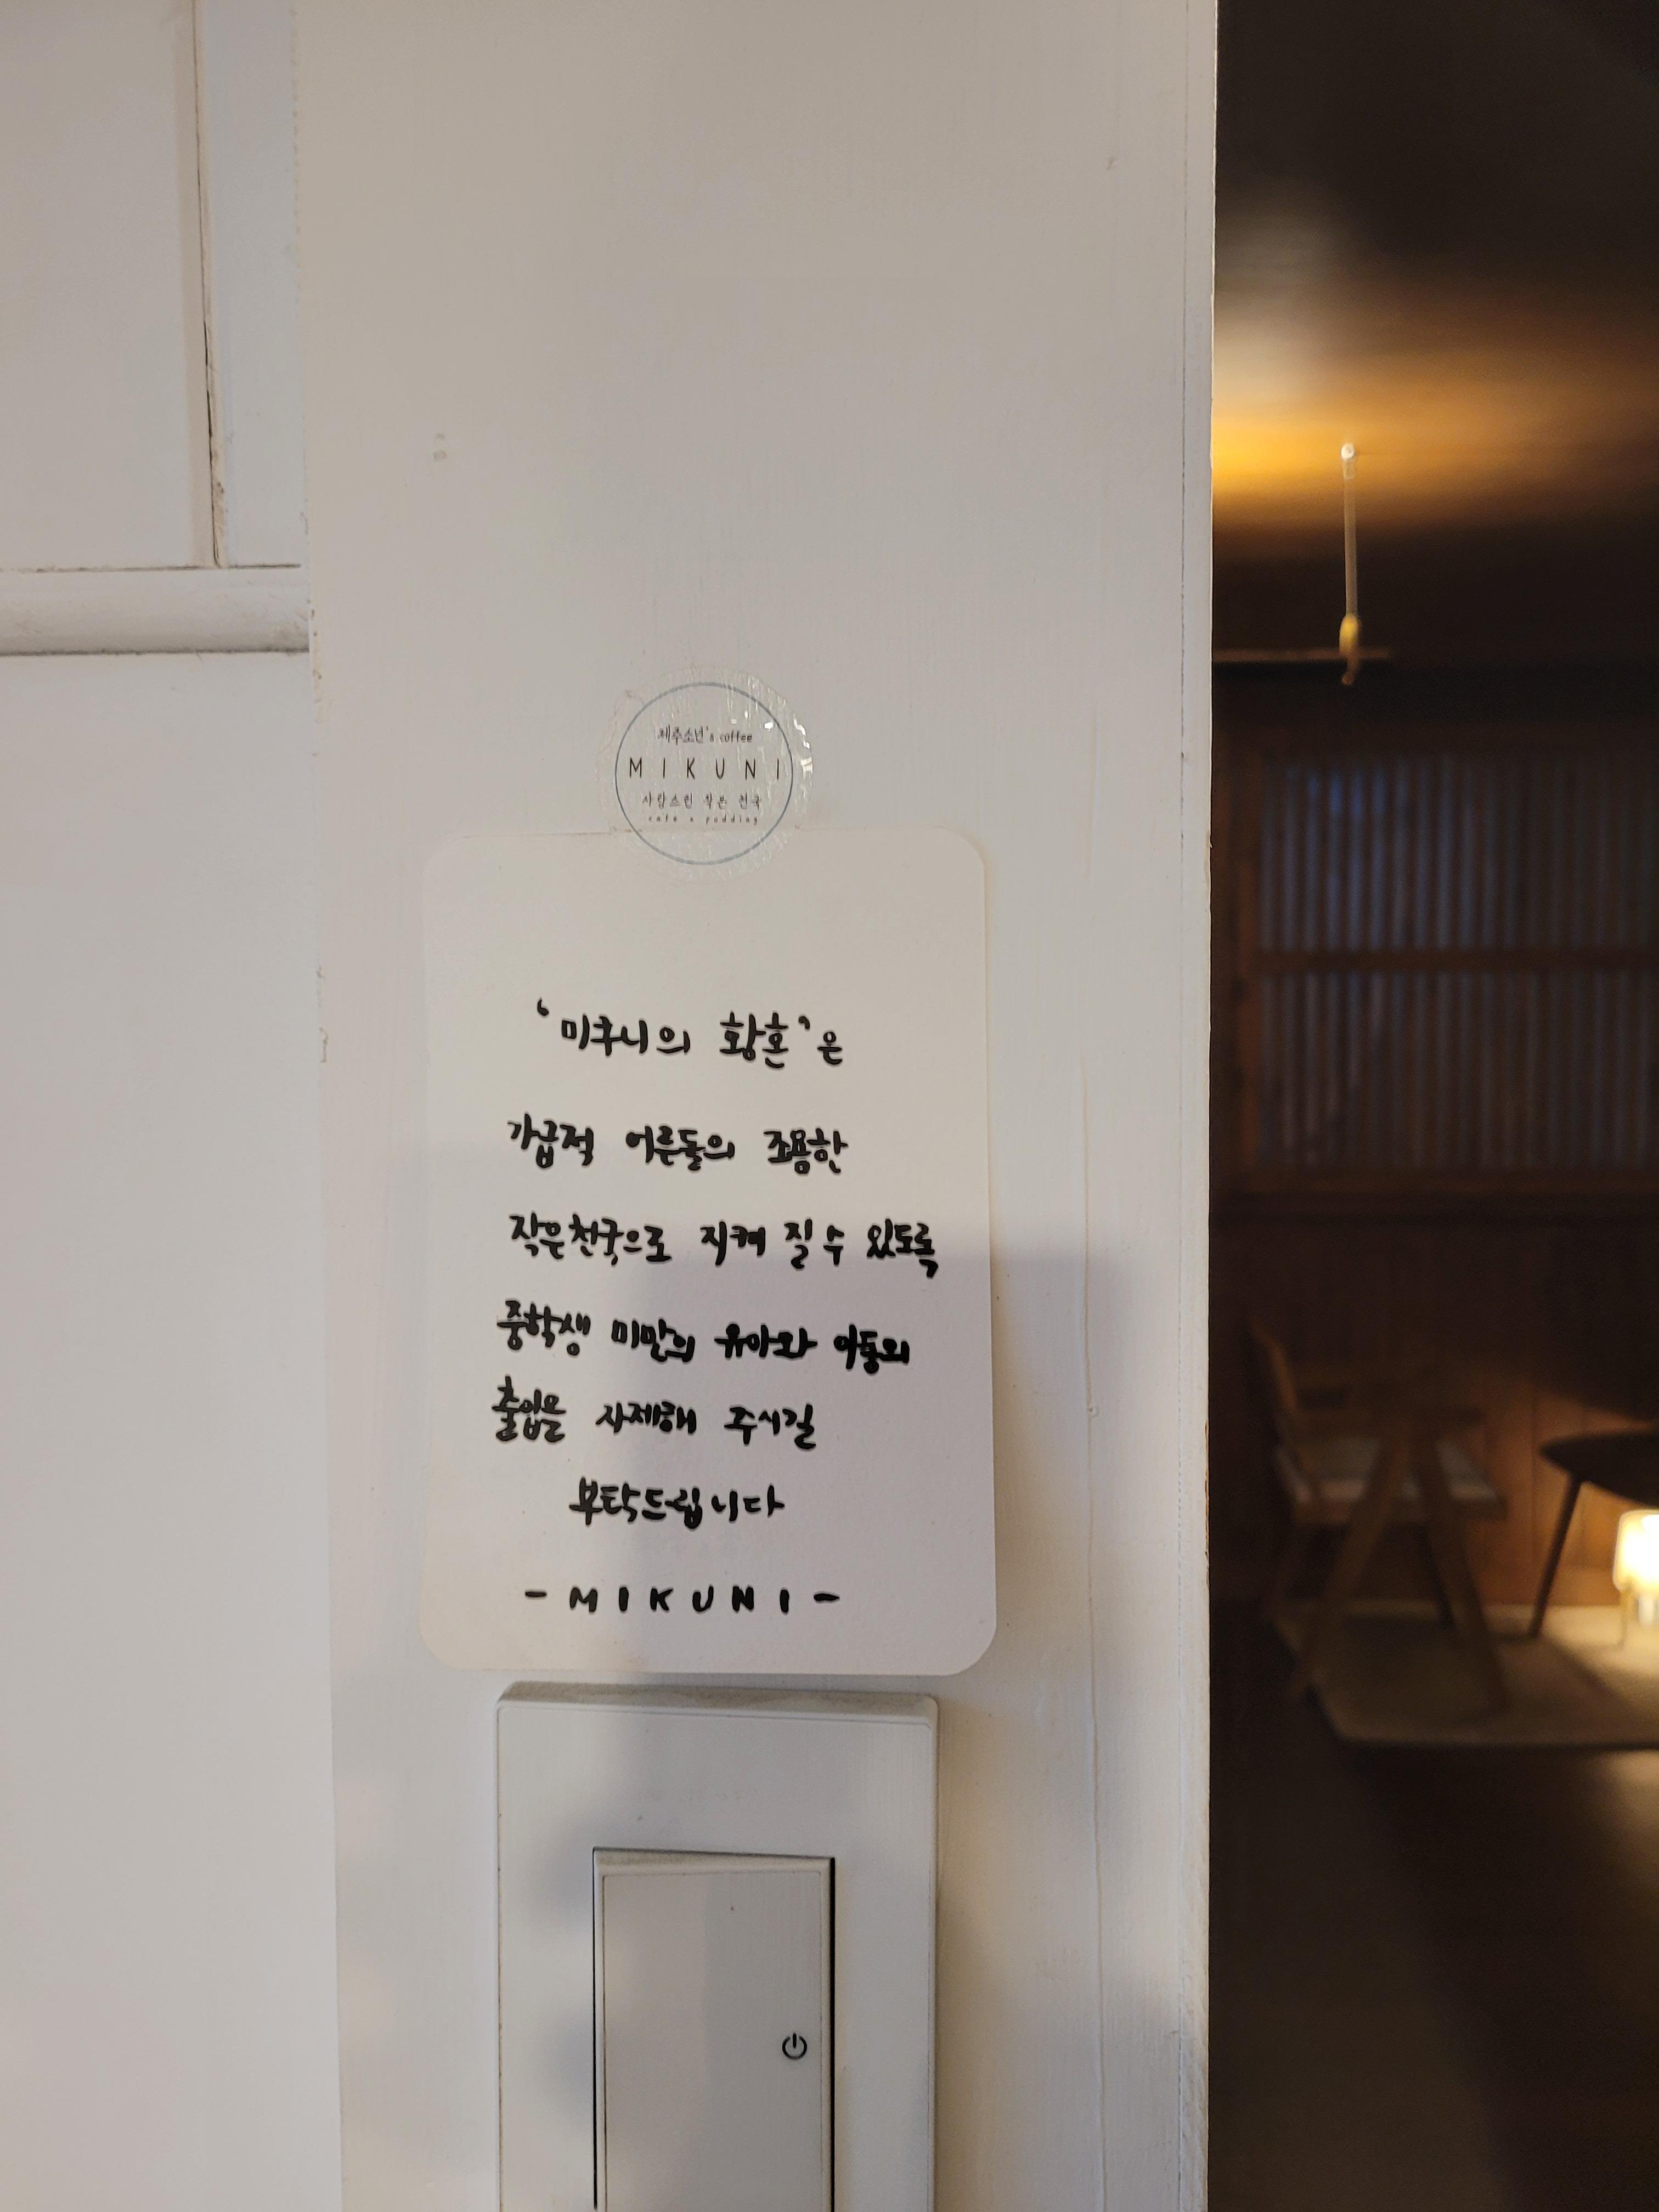 제주소년's coffee
MIKUNI
사람스런 작은 천국
cafe & pudding
‘미쿠니의 황혼’은
가급적 어른들의 조용한
작은천국으로 지켜 질 수 있도록
중학생 미만의 유아와 아동의
출입을 자제해 주시길
부탁드립니다
- MIKUNI -